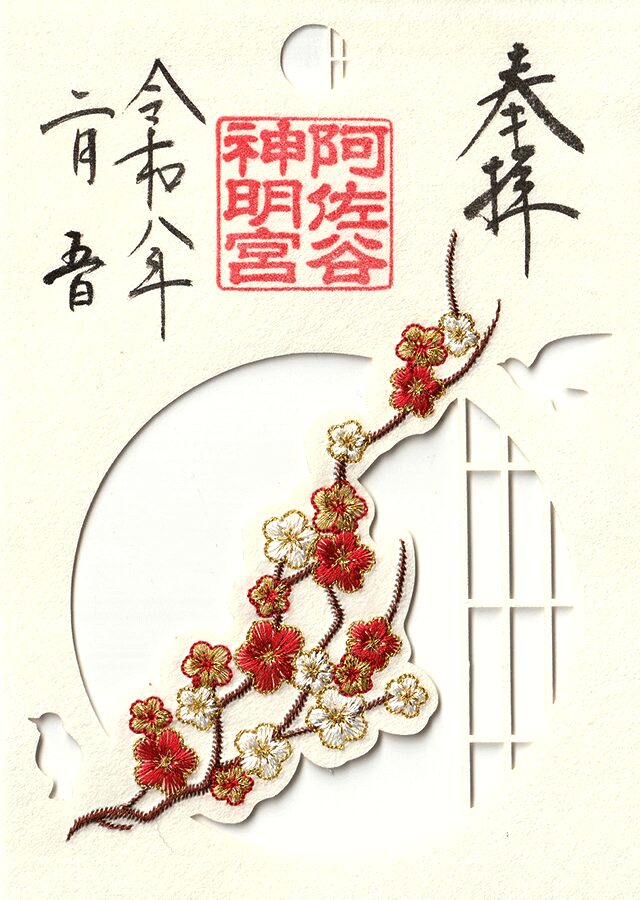 奉拝
阿佐谷
神明宮
令和八年
二月五日